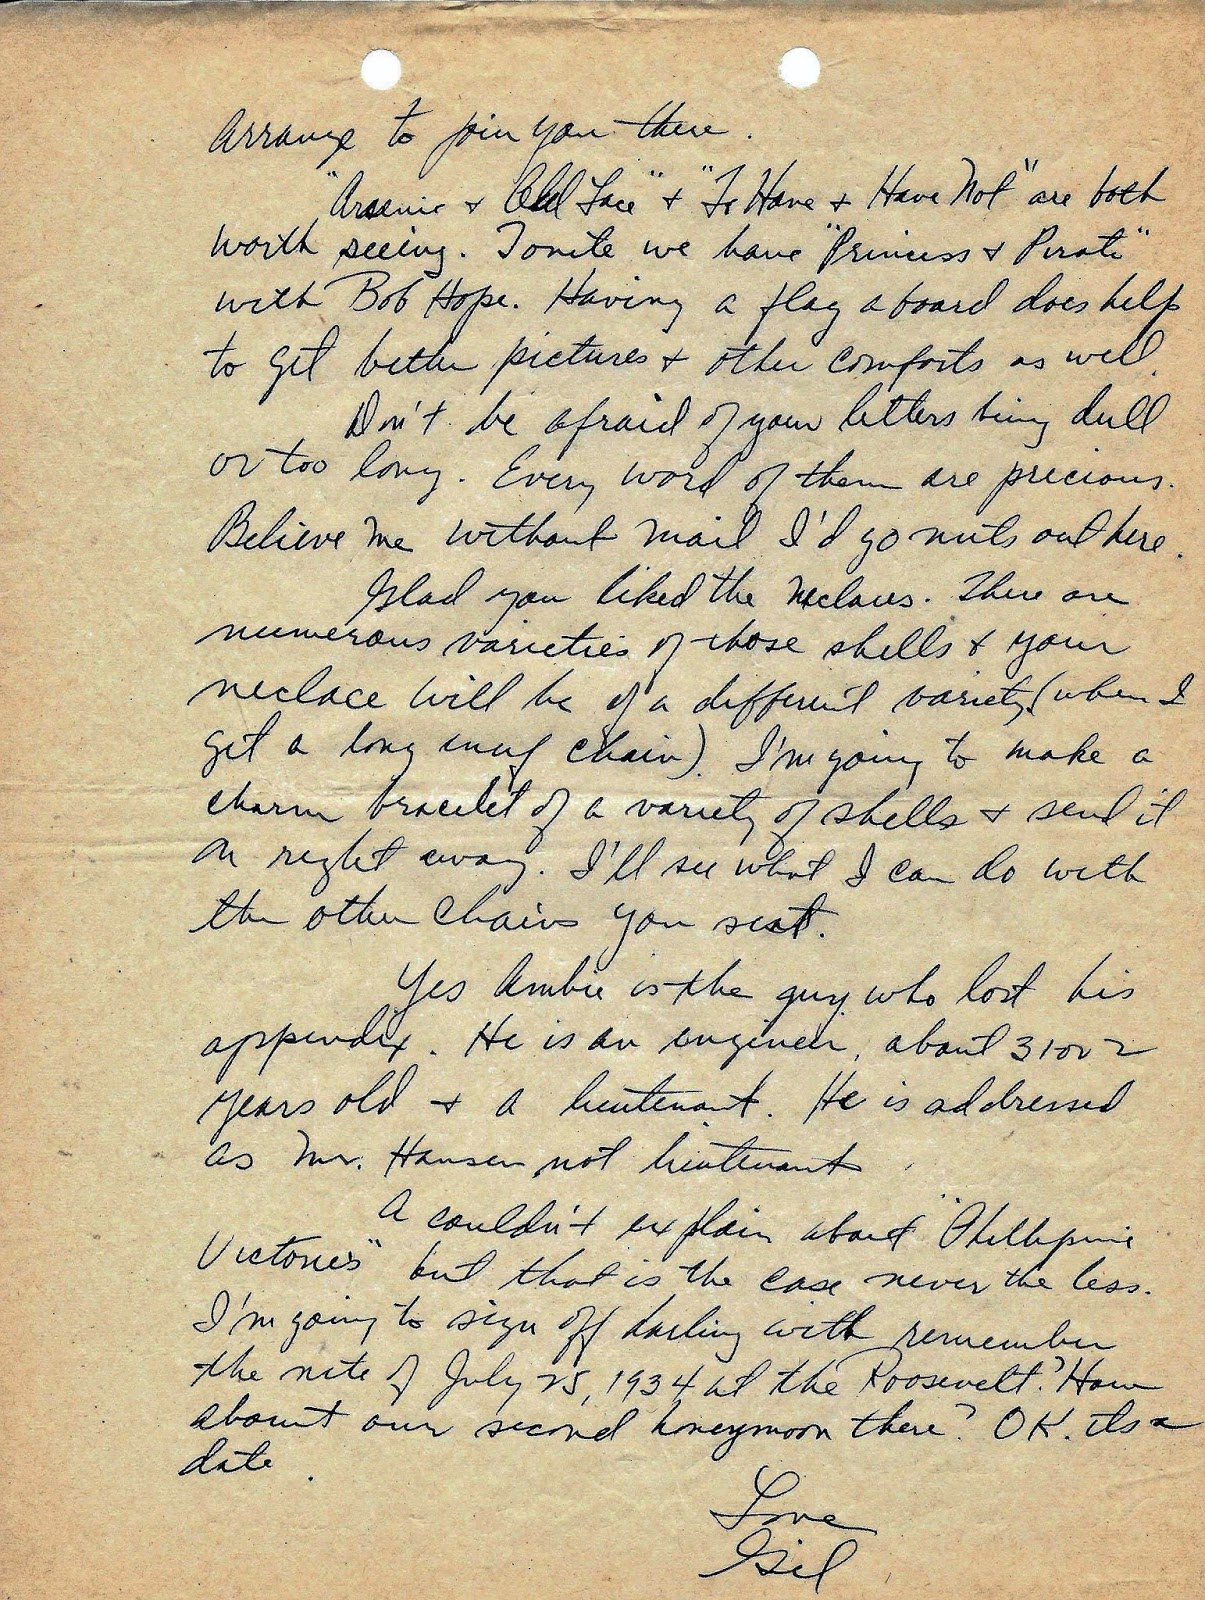 Arrange to join you there.
"Arsenic + Old Lace" + "To Have + Have Not" are both
worth seeing. Tonite we have "Princess + Pirate"
with Bob Hope. Having a flag aboard does help
to get better pictures + other comforts as well.
Don't be afraid of your letters being dull
or too long. Every word of them are precious.
Believe me without mail I'd go nuts out here.
Glad you liked the neclaces. There are
numerous varieties of those shells + your
neclace will be of a different variety (when I
get a long enuf chain). I'm going to make a
charm bracelet of a variety of shells + send it
on right away. I'll see what I can do with
the other chains you sent.
Yes Ambie is the guy who lost his
appendix. He is an engineer, about 31 or 2
years old + a lieutenant. He is addressed
as Mr. Hansen not lieutenant
A couldn't explain about "Phillipine
Victories" but that is the case never the less.
I'm going to sign off darling with remember
the nite of July 25, 1934 at the Roosevelt? How
about our second honeymoon there? OK. its a
date.
Love
Gil